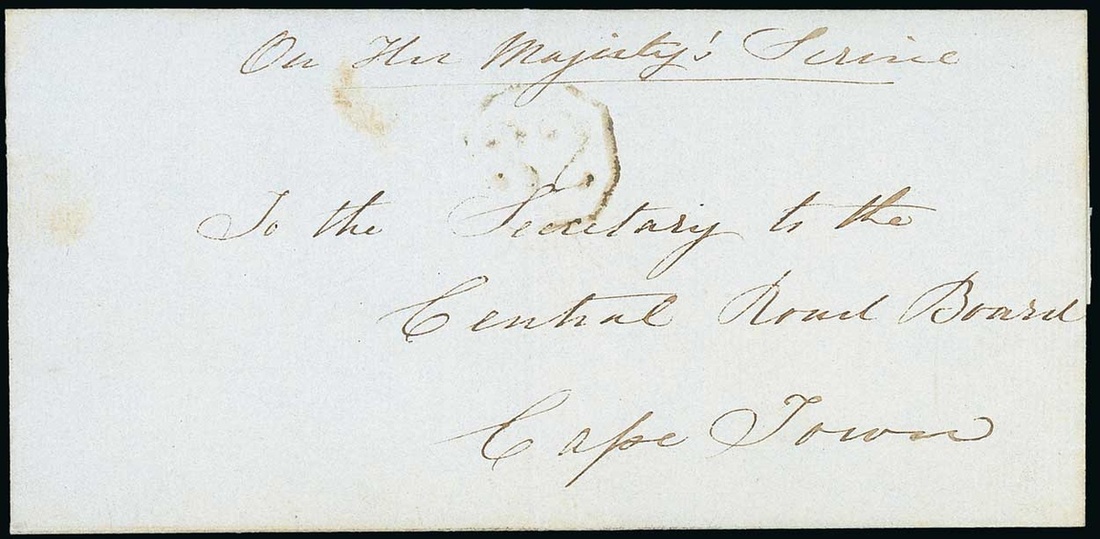 On Her Majesty's Service
To the Secretary to the
Central Road Board
Cape Town